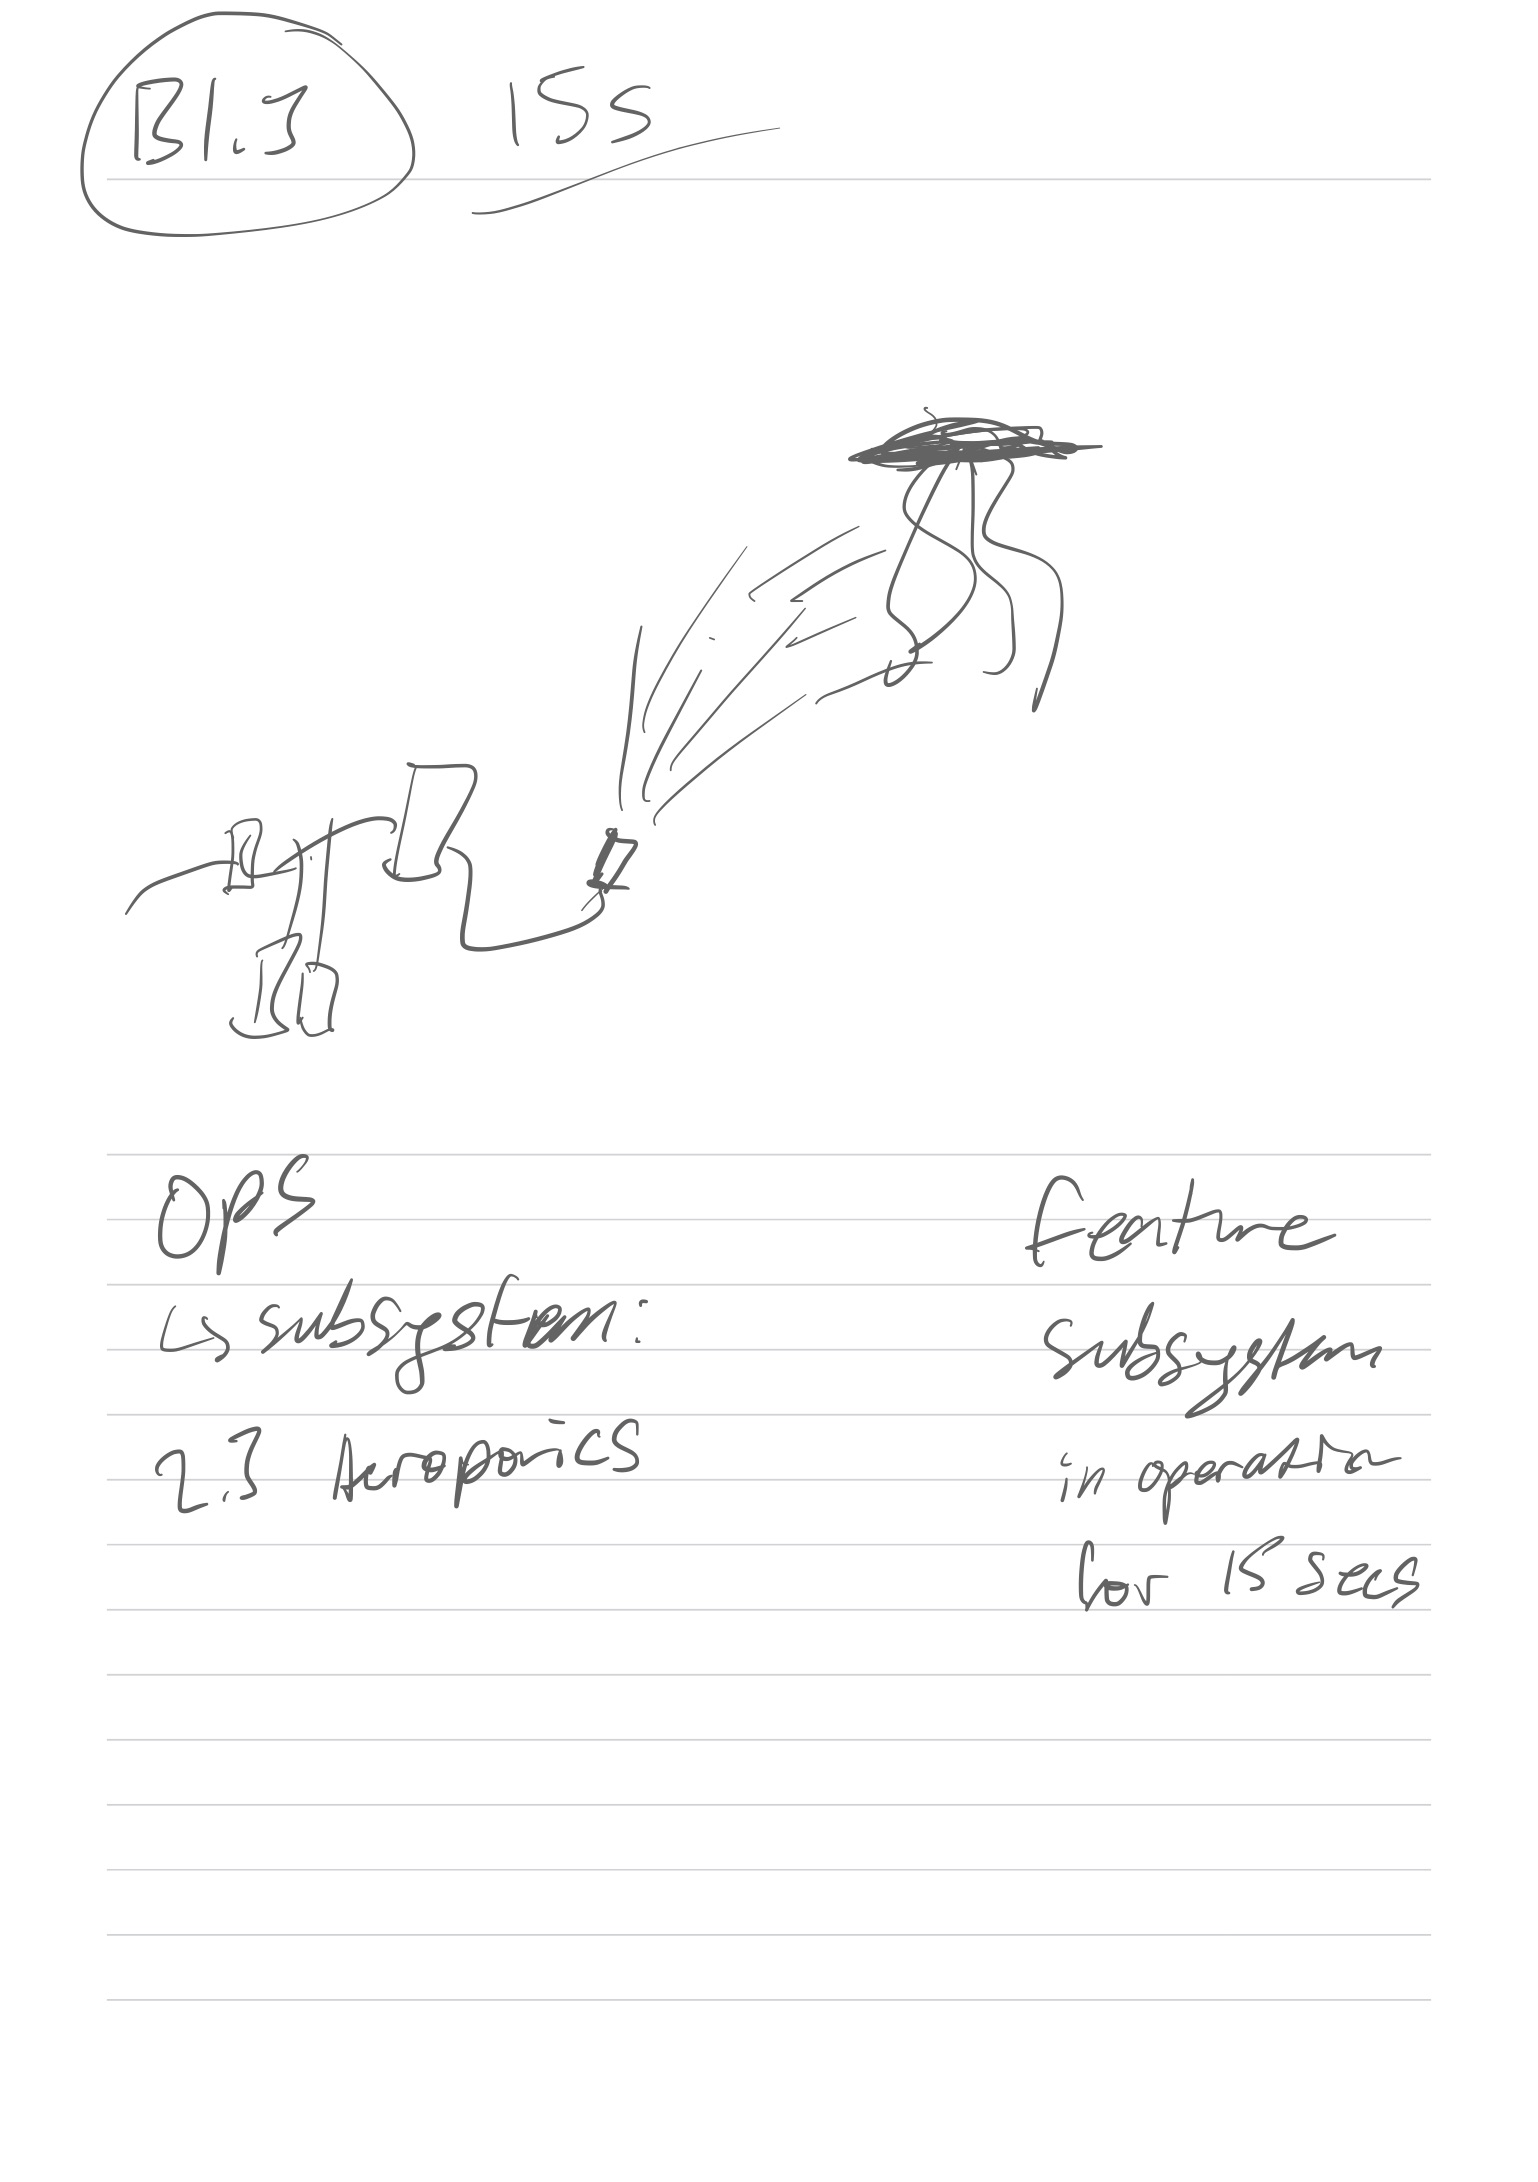 B1.3 15s
Ops
↳ subsystem:
2.3 Aeroponics
Feature
subsystem
in operation
for 15 secs